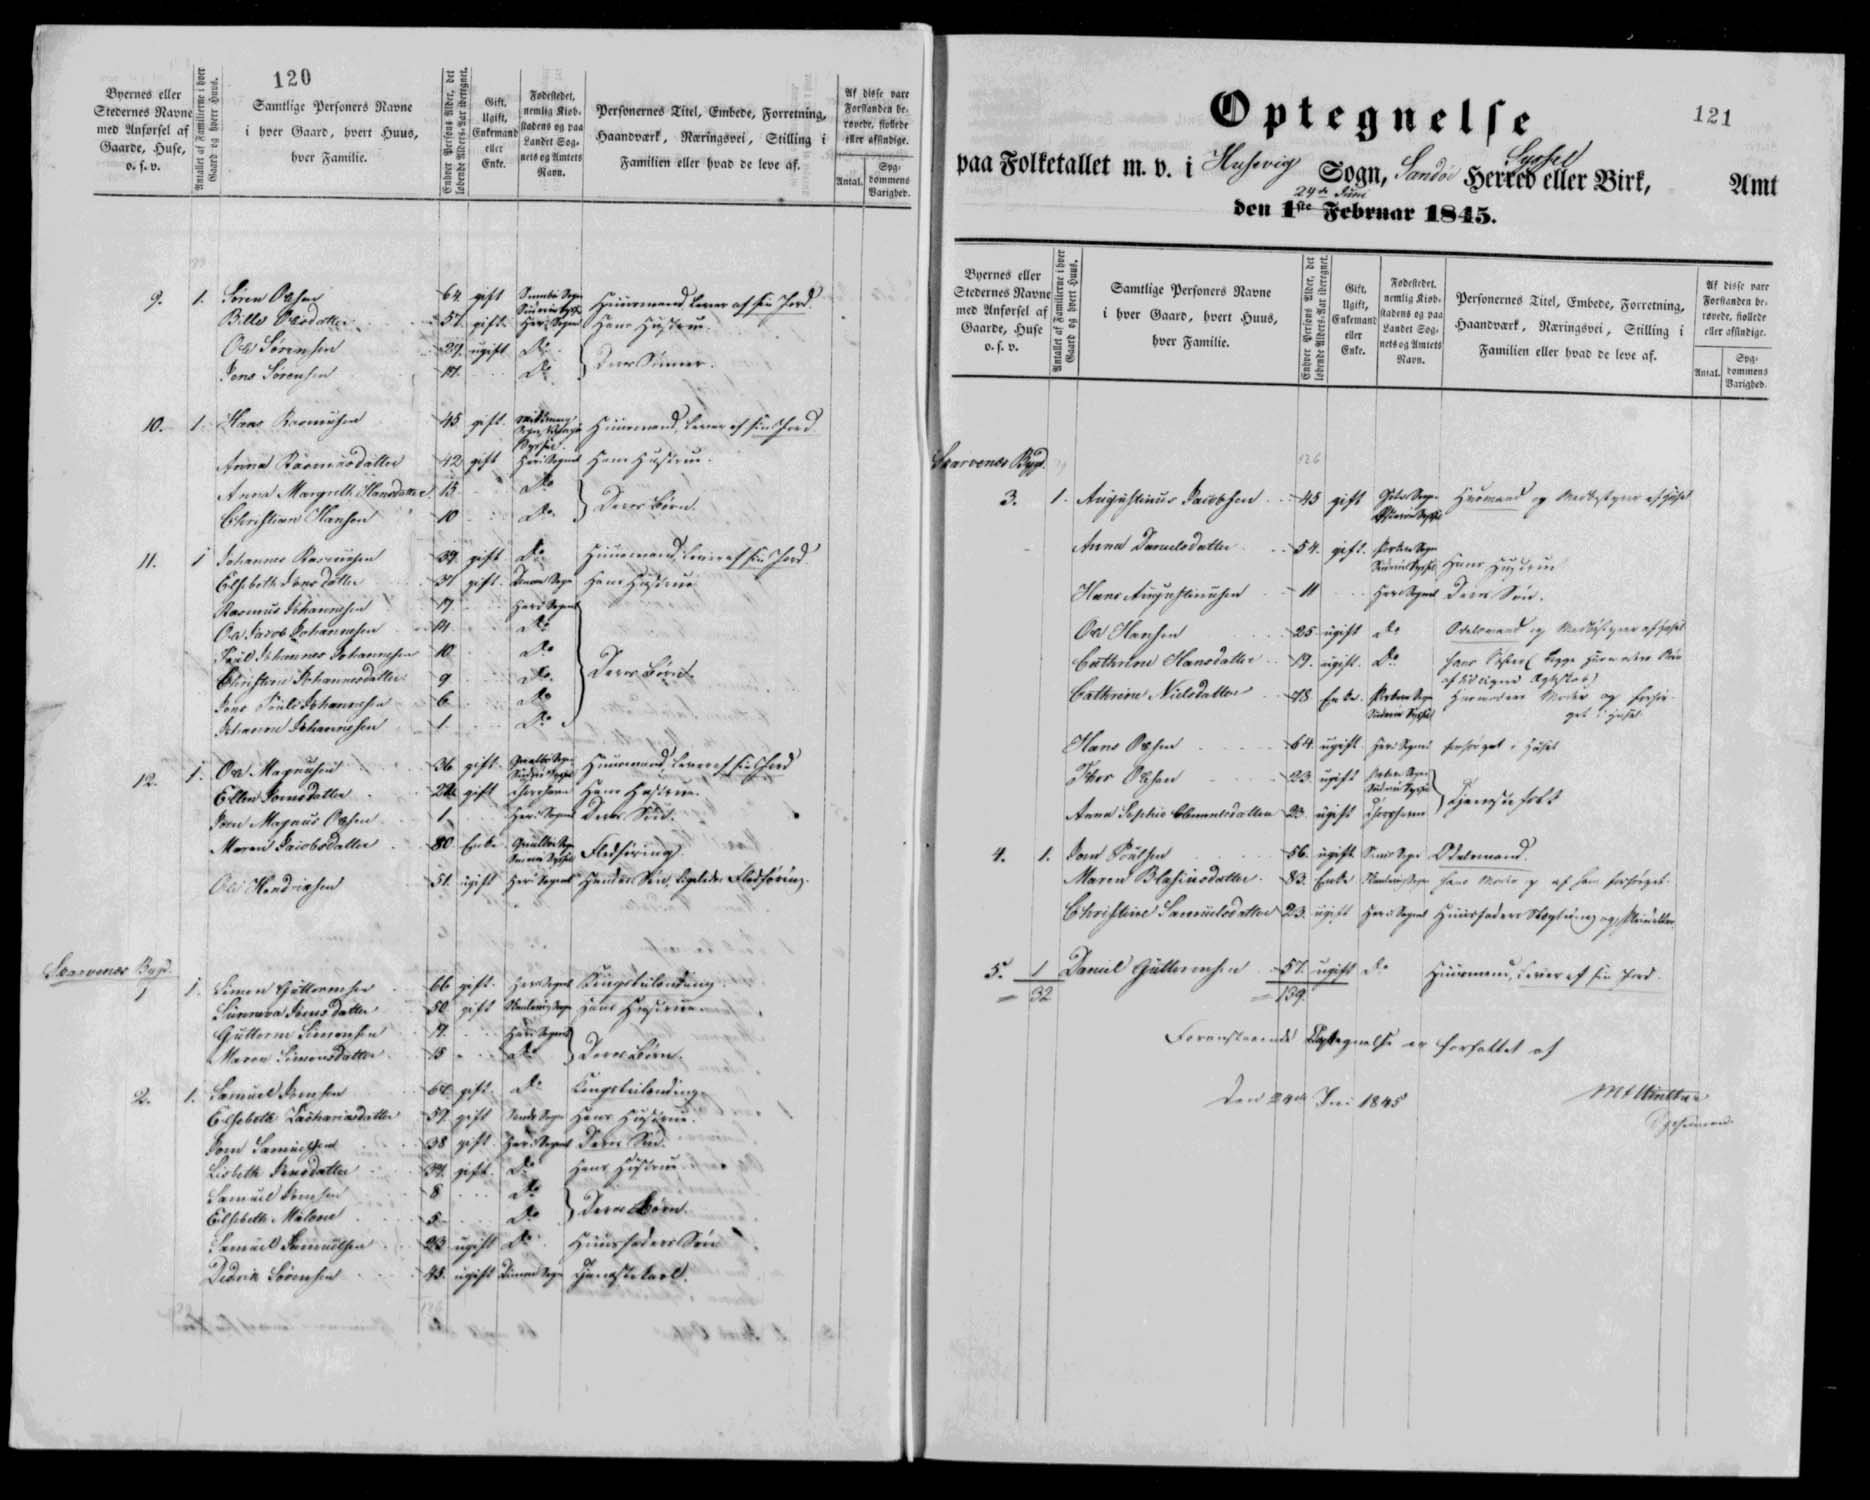 120
Byernes eller
Stedernes Navne
med Anførsel af
Gaarde, Huse,
o. s. v.
Antallet af Familierne i hver
Gaard og hvert Huus.
Samtlige Personers Navne
i hver Gaard, hvert Huus,
hver Familie.
Enhver Persons Alder, det
løbende Alders-Aar iberegnet.
Gift,
Ugift,
Enkemand
eller
Enke.
Fødestedet,
nemlig Kiøb-
stadens og paa
Landet Sog-
nets og Amtets
Navn.
Personernes Titel, Embede, Forretning,
Haandværk, Næringsvei, Stilling i
Familien eller hvad de leve af.
Af disse vare
Forstanden be-
røvede, fiollede
eller afsindige.
Antal.
Syg-
dommens
Varighed.
9. 1. Søren Olsen 64 gift Sumbø Sogn Suderø Syssel Huusmand, lever af sin Jord
Bille Olsdatter 57. gift. Her i Sognet Hans Hustrue
Ole Sørensen 27. ugift Do
Jens Sørensen 17. Do } Deres Sønner.
10. 1. Hans Rasmusen 45 gift Sogn Syssel Huusmand, lever af sin Jord
Anna Rasmusdatter 42 gift Her i Sognet Hans Hustrue.
Anna Margreth Hansdatter 13 Do
Christian Hansen 10 Do } Deres Børn.
11. 1 Johannes Rasmusen 39. gift Do Huusmand, lever af sin Jord
Elsebeth Jensdatter 37 gift. Sogn Hans Hustrue
Rasmus Johannesen 17 Her i Sognet
Ole Jacob Johannesen 14. Do
Poul Johannes Johannesen 10 Do
Christine Johannesdatter 9 Do } Deres Børn.
Jens Pouli Johannesen 6 Do
Johanne Johannesen 1. Do
12. 1. Ole Magnusen 36 gift. Qvalbø Sogn Suderø Syssel Huusmand, lever af sin Jord
Ellen Joensdatter 24 gift Thorshavn Hans Hustrue.
Joen Magnus Olsen 1 Her i Sognet Deres Søn.
Maren Jacobsdatter 80 Enke Qvalbø Sogn Suderø Syssel Fledføring
Ole Hendriksen 51. ugift Her i Sognet Hendes Søn, ligeledes Fledføring.
Skarvenes Bygd.
1 1. Simon Guttormsen 66 gift. Her i Sognet Kongsbeilænding.
Sunneva Joensdatter 50 gift Sogn Hans Hustrue
Guttorm Simonsen 17. Her i Sognet
Maren Simonsdatter 15 Do } Deres Børn.
2. 1. Samuel Joensen 64 gift. Do Kongsbeilænding.
Elsebeth Zachariasdatter 59 gift Sands Sogn Hans Hustrue.
Joen Samuelsen 38 gift. Her i Sognet Deres Søn.
Lisbeth Jensdatter 37. gift. Do Hans Hustrue
Samuel Joensen 8 Do
Elsebeth Malene 5 Do } Deres Børn.
Samuel Samuelsen 23 ugift Do Huusfaders Søn
Didrik Sørensen 45. ugift Sogn Tjenestekarl.
121
Optegnelse
paa Folketallet m. v. i Husevig Sogn, Sandø Syssel Herred eller Birk, Amt
24de Juni
den 1ste Februar 1845.
Byernes eller
Stedernes Navne
med Anførsel af
Gaarde, Huse
o. s. v.
Antallet af Familierne i hver
Gaard og hvert Huus.
Samtlige Personers Navne
i hver Gaard, hvert Huus,
hver Familie.
Enhver Persons Alder, det
løbende Alders-Aar iberegnet.
Gift,
Ugift,
Enkemand
eller
Enke.
Fødestedet,
nemlig Kiøb-
stadens og paa
Landet Sog-
nets og Amtets
Navn.
Personernes Titel, Embede, Forretning,
Haandværk, Næringsvei, Stilling i
Familien eller hvad de leve af.
Af disse vare
Forstanden be-
røvede, fiollede
eller afsindige.
Antal.
Syg-
dommens
Varighed.
126
Skarvenes Bygd.
3. 1. Augustinus Jacobsen 45 gift Sogn Syssel Huusmand og Medbestyrer af Huset
Anna Danielsdatter 54. gift. Sogn Suderø Syssel Hans Hustrue
Hans Augustinusen 11 Her i Sognet Deres Søn.
Ole Hansen 25 ugift Do Odelsmand og Medbestyrer af Huset
Cathrine Hansdatter 19. ugift. Do hans Søster (begge Huusmoders Børn
af tidligere Ægteskab)
Cathrine Nielsdatter 78. Enke. Sogn Suderø Syssel Huusmoders Moder og forsør-
get i Huset
Hans Olsen 64. ugift Her i Sognet forsørget i Huset
Olsen 23. ugift Sogn Suderø Syssel
Anna Sophie Clementsdatter 23. ugift Thorshavn } Tjenestefolk
4. 1. Joen Poulsen 56. ugift. Sogn Odelsmand.
Maren Blasiusdatter. 83. Enke Sogn hans Moder og af ham forsørget.
Christine Samuelsdatter 23. ugift Her i Sognet Huusfaders Slægtning og
5. 1 Daniel Guttormsen 57. ugift Do Huusmand, lever af sin Jord.
= 32 = 139.
Foranstaaende Optegnelse er forfattet af
Den 24de Juni 1845